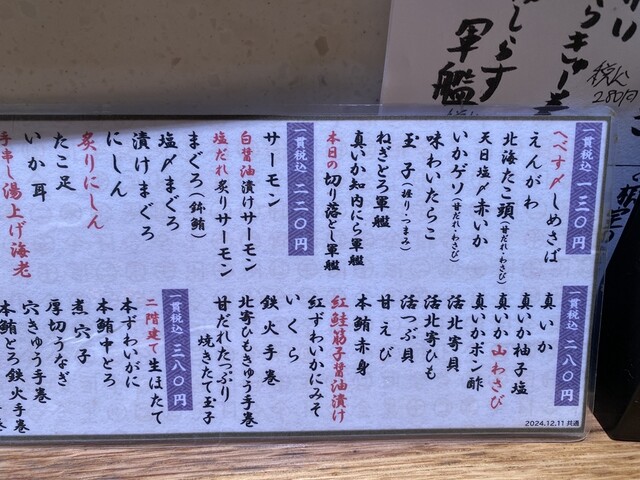 軍艦
しらす
税込
280円
一貫税込 一三〇円
へべす〆しめさば
えんがわ
北海たこ頭(甘だれ・わさび)
天日塩〆赤いか
いかゲソ(甘だれ・わさび)
味わいたらこ
玉子(握り・つまみ)
ねぎとろ軍艦
真いか知内にら軍艦
本日の切り落とし軍艦
一貫税込 二二〇円
サーモン
白醤油漬けサーモン
塩だれ炙りサーモン
まぐろ(鉢鮪)
塩〆まぐろ
漬けまぐろ
にしん
炙りにしん
たこ足
いか耳
手串し湯上げ海老
一貫税込 二八〇円
真いか
真いか柚子塩
真いか山わさび
真いかポン酢
活北寄貝
活北寄ひも
活つぶ貝
甘えび
本鮪赤身
紅鮭筋子醤油漬け
紅ずわいかにみそ
いくら
鉄火手巻
北寄ひもきゅう手巻
甘だれたっぷり
焼きたて玉子
一貫税込 三八〇円
二階建て生ほたて
本ずわいがに
本鮪中とろ
煮穴子
厚切うなぎ
穴きゅう手巻
本鮪とろ鉄火手巻
2024.12.11 共通